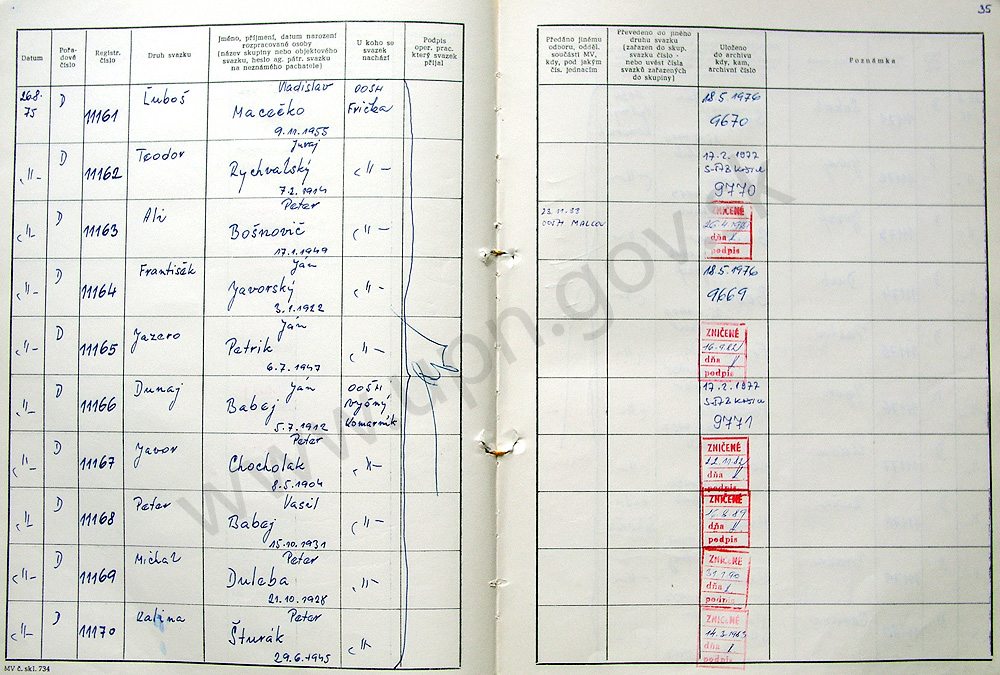 35
Datum
Pořadové číslo
Registr. číslo
Druh svazku
Jméno, příjmení, datum narození
rozpracované osoby
(název skupiny nebo objektového
svazku, heslo ag. pátr. svazku
na neznámého pachatele)
U koho se
svazek
nachází
Podpis
oper. prac.
který svazek
přijal
Předáno jinému
odboru, odděl.
součásti MV,
kdy, pod jakým
čís. jednacím
Převedeno do jiného
druhu svazku
(zařazen do skup.
svazku číslo -
nebo uvést čísla
svazků zařazených
do skupiny)
Uloženo
do archivu
kdy, kam,
archivní číslo
Poznámka
26.8. 75 D 11161 Ľuboš Vladislav
Macečko
9.11.1955
OOSH
Frička
18.5.1976
9670
-"- D 11162 Teodor Juraj
Rychvalský
7.2.1914
-"-
17.2.1977
9770
-"- D 11163 Ali Peter
Bošnovič
17.1.1949
-"-
MALCOV
ZNIČENÉ
dňa
podpis
-"- D 11164 František Ján
Javorský
3.1.1922
-"-
18.5.1976
9669
-"- D 11165 Jazero Ján
Petrik
6.7.1947
-"-
ZNIČENÉ
dňa
podpis
-"- D 11166 Dunaj Ján
Babaj
5.7.1912
OOSH
Vyšný
Komarník
17.2.1977
9771
-"- D 11167 Javor Peter
Chocholak
8.5.1904
-"-
ZNIČENÉ
dňa
podpis
-"- D 11168 Peter Vasil
Babaj
15.10.1931
-"-
ZNIČENÉ
dňa
podpis
-"- D 11169 Michal Peter
Duleba
21.10.1928
-"-
ZNIČENÉ
dňa
podpis
-"- D 11170 Kalina Peter
Šturák
29.6.1945
-"-
ZNIČENÉ
dňa
podpis
MV č. skl. 734
www.upn.gov.sk